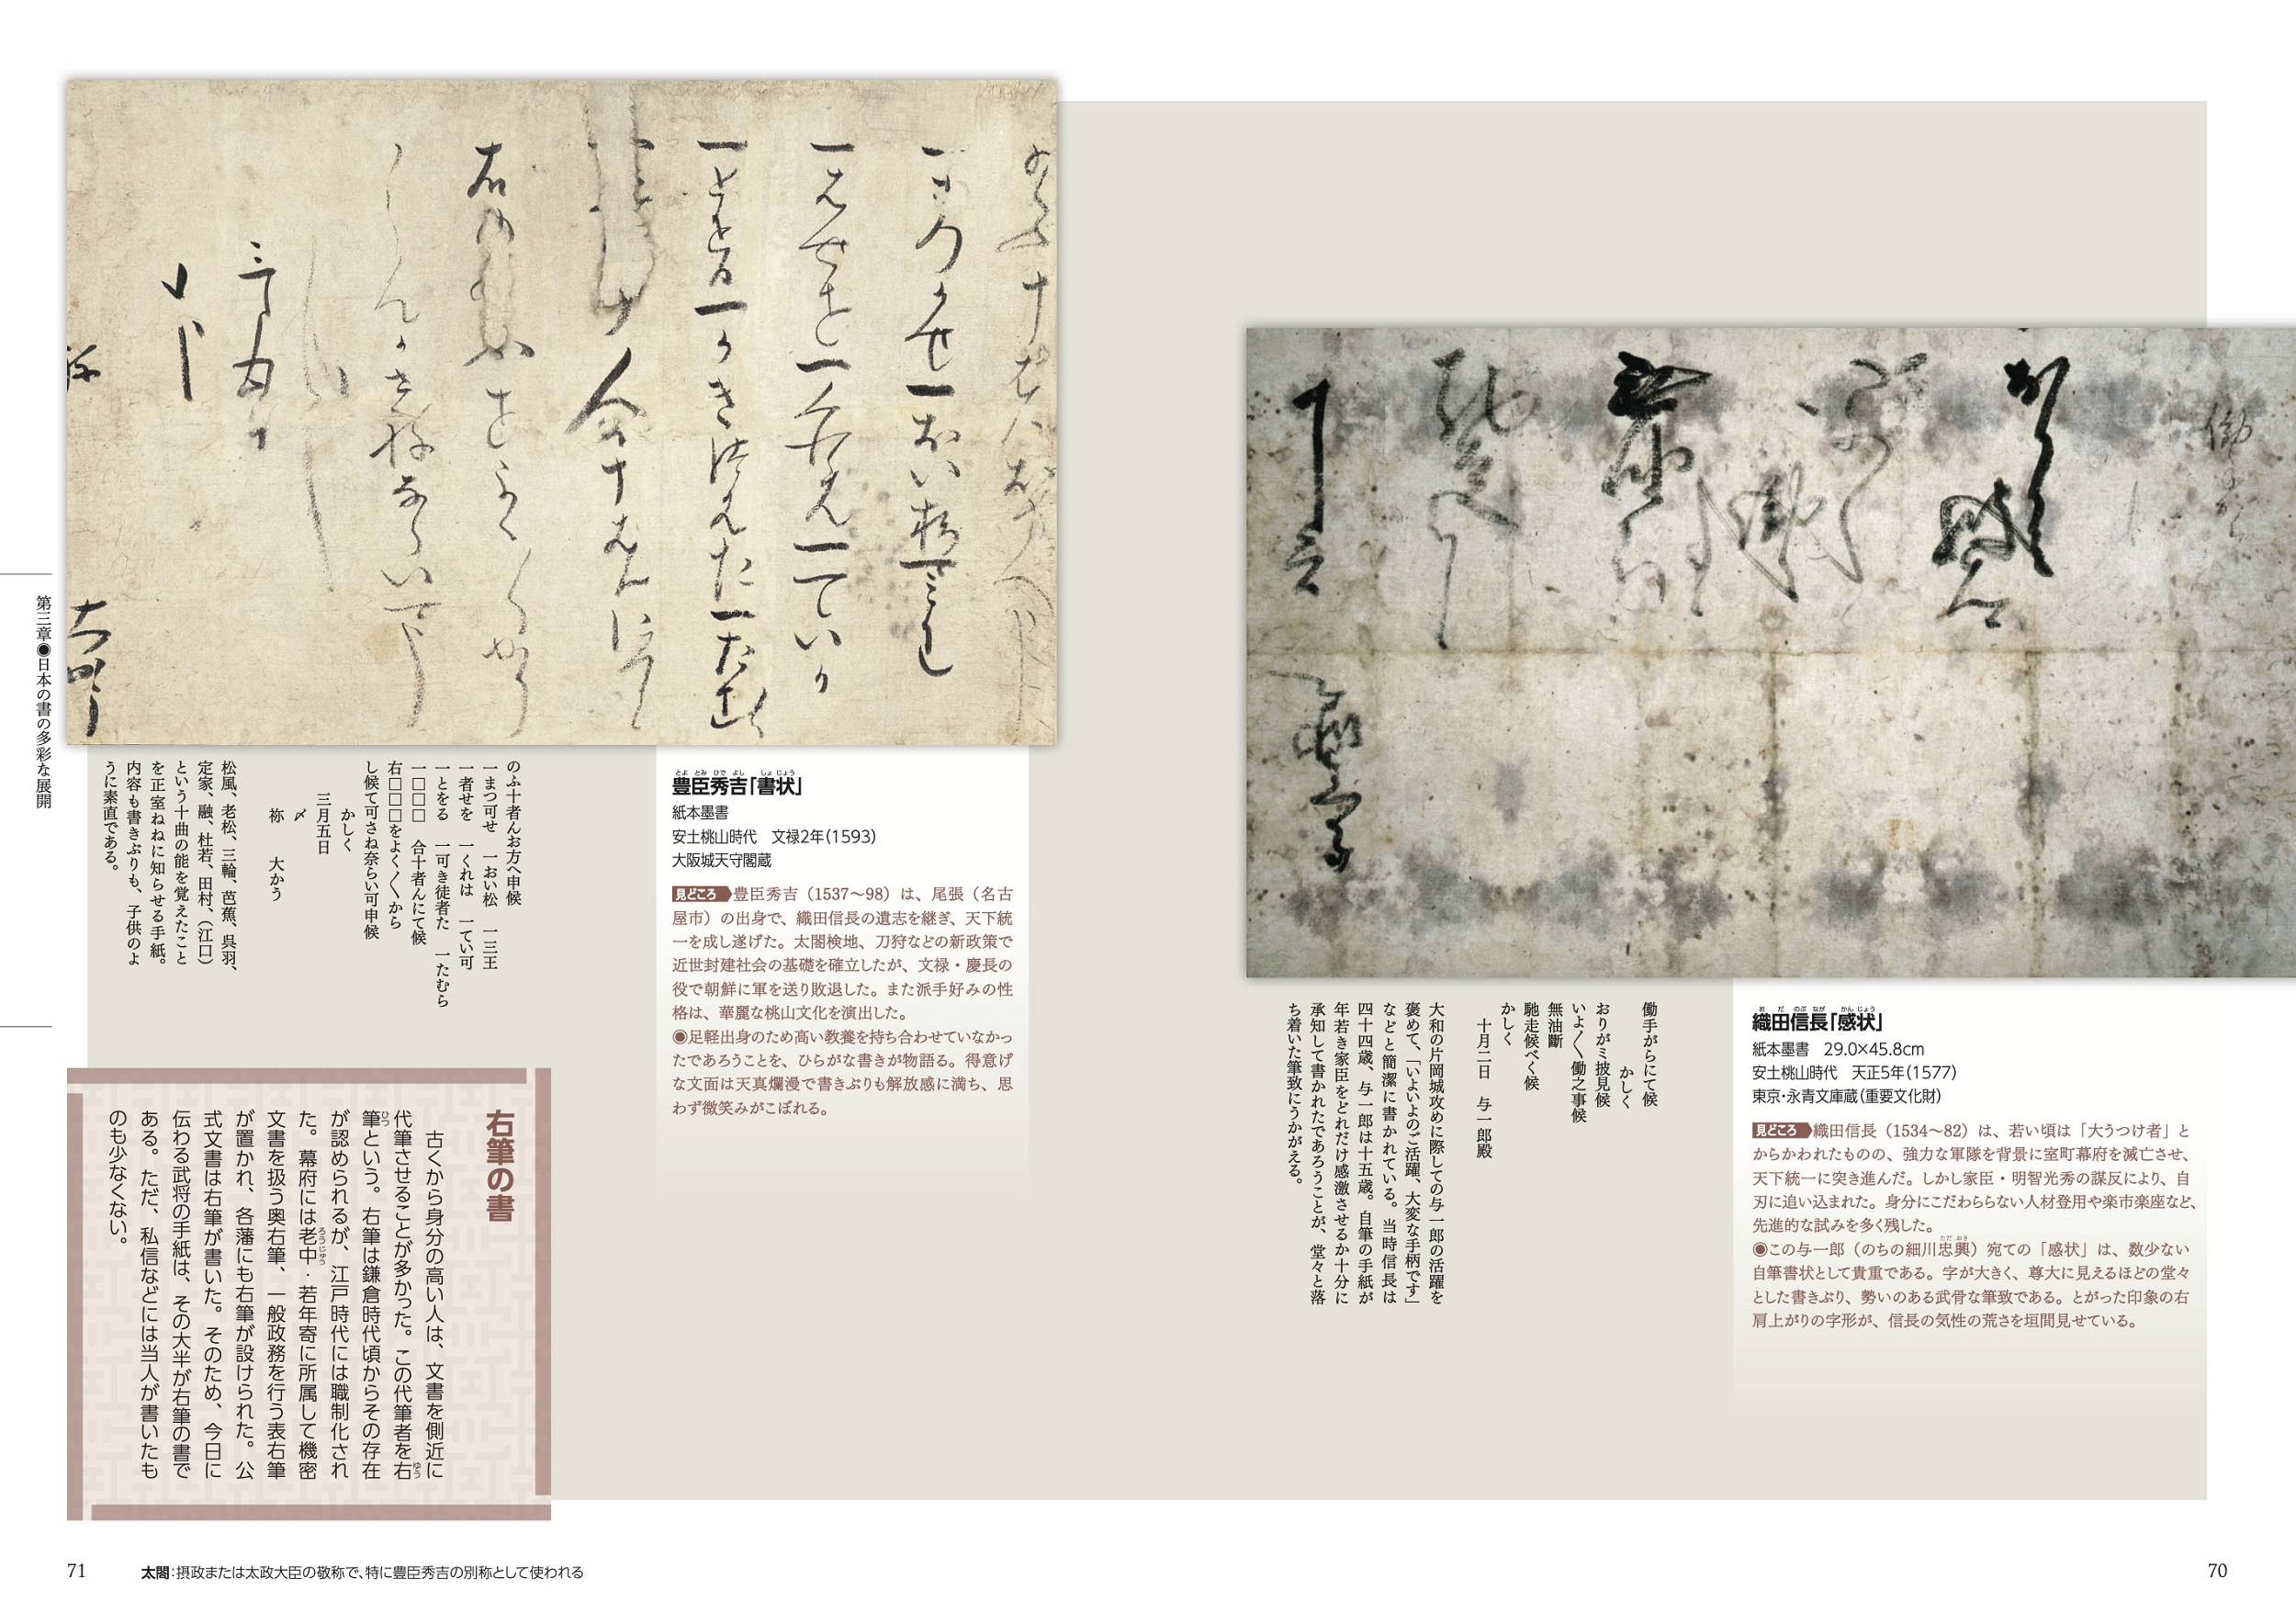 織田信長「感状」
おだのぶながかんじょう
紙本墨書　29.0×45.8cm
安土桃山時代　天正5年(1577)
東京・永青文庫蔵(重要文化財)
見どころ 織田信長（1534〜82）は、若い頃は「大うつけ者」と
からかわれたものの、強力な軍隊を背景に室町幕府を滅亡させ、
天下統一に突き進んだ。しかし家臣・明智光秀の謀反により、自
刃に追い込まれた。身分にこだわらない人材登用や楽市楽座など、
先進的な試みを多く残した。
◉この与一郎（のちの細川忠興）宛ての「感状」は、数少ない
自筆書状として貴重である。字が大きく、尊大に見えるほどの堂々
とした書きぶり、勢いのある武骨な筆致である。とがった印象の右
肩上がりの字形が、信長の気性の荒さを垣間見せている。
働手がらにて候
かしく
おりがミ披見候
いよ〱働之事候
無油斷
馳走候べく候
かしく
十月二日　与一郎殿
大和の片岡城攻めに際しての与一郎の活躍を
褒めて、「いよいよのご活躍、大変な手柄です」
などと簡潔に書かれている。当時信長は
四十四歳、与一郎は十五歳。自筆の手紙が
年若き家臣をどれだけ感激させるか十分に
承知して書かれたであろうことが、堂々と落
ち着いた筆致にうかがえる。
豊臣秀吉「書状」
とよとみひでよししょじょう
紙本墨書
安土桃山時代　文禄2年(1593)
大阪城天守閣蔵
見どころ 豊臣秀吉（1537〜98）は、尾張（名古
屋市）の出身で、織田信長の遺志を継ぎ、天下統
一を成し遂げた。太閤検地、刀狩などの新政策で
近世封建社会の基礎を確立したが、文禄・慶長の
役で朝鮮に軍を送り敗退した。また派手好みの性
格は、華麗な桃山文化を演出した。
◉足軽出身のため高い教養を持ち合わせていなかっ
たであろうことを、ひらがな書きが物語る。得意げ
な文面は天真爛漫で書きぶりも解放感に満ち、思
わず微笑みがこぼれる。
のふ十者んお方へ申候
一まつ可せ　一おい松　一三王
一者せを　一くれは　一てい可
一とをる　一可き徒者た　一たむら
一□□□　合十者んにて候
右□□□をよく〱から
し候て可さね奈らい可申候
かしく
三月五日
〆
祢　大かう
松風、老松、三輪、芭蕉、呉羽、
定家、融、杜若、田村、（江口）
という十曲の能を覚えたこと
を正室ねねに知らせる手紙。
内容も書きぶりも、子供のよ
うに素直である。
右筆の書
古くから身分の高い人は、文書を側近に
代筆させることが多かった。この代筆者を右
筆という。右筆は鎌倉時代頃からその存在
が認められるが、江戸時代には職制化され
た。幕府には老中・若年寄に所属して機密
文書を扱う奥右筆、一般政務を行う表右筆
が置かれ、各藩にも右筆が設けられた。公
式文書は右筆が書いた。そのため、今日に
伝わる武将の手紙は、その大半が右筆の書で
ある。ただ、私信などには当人が書いたも
のも少なくない。
第三章◉日本の書の多彩な展開
71
太閤：摂政または太政大臣の敬称で、特に豊臣秀吉の別称として使われる
70